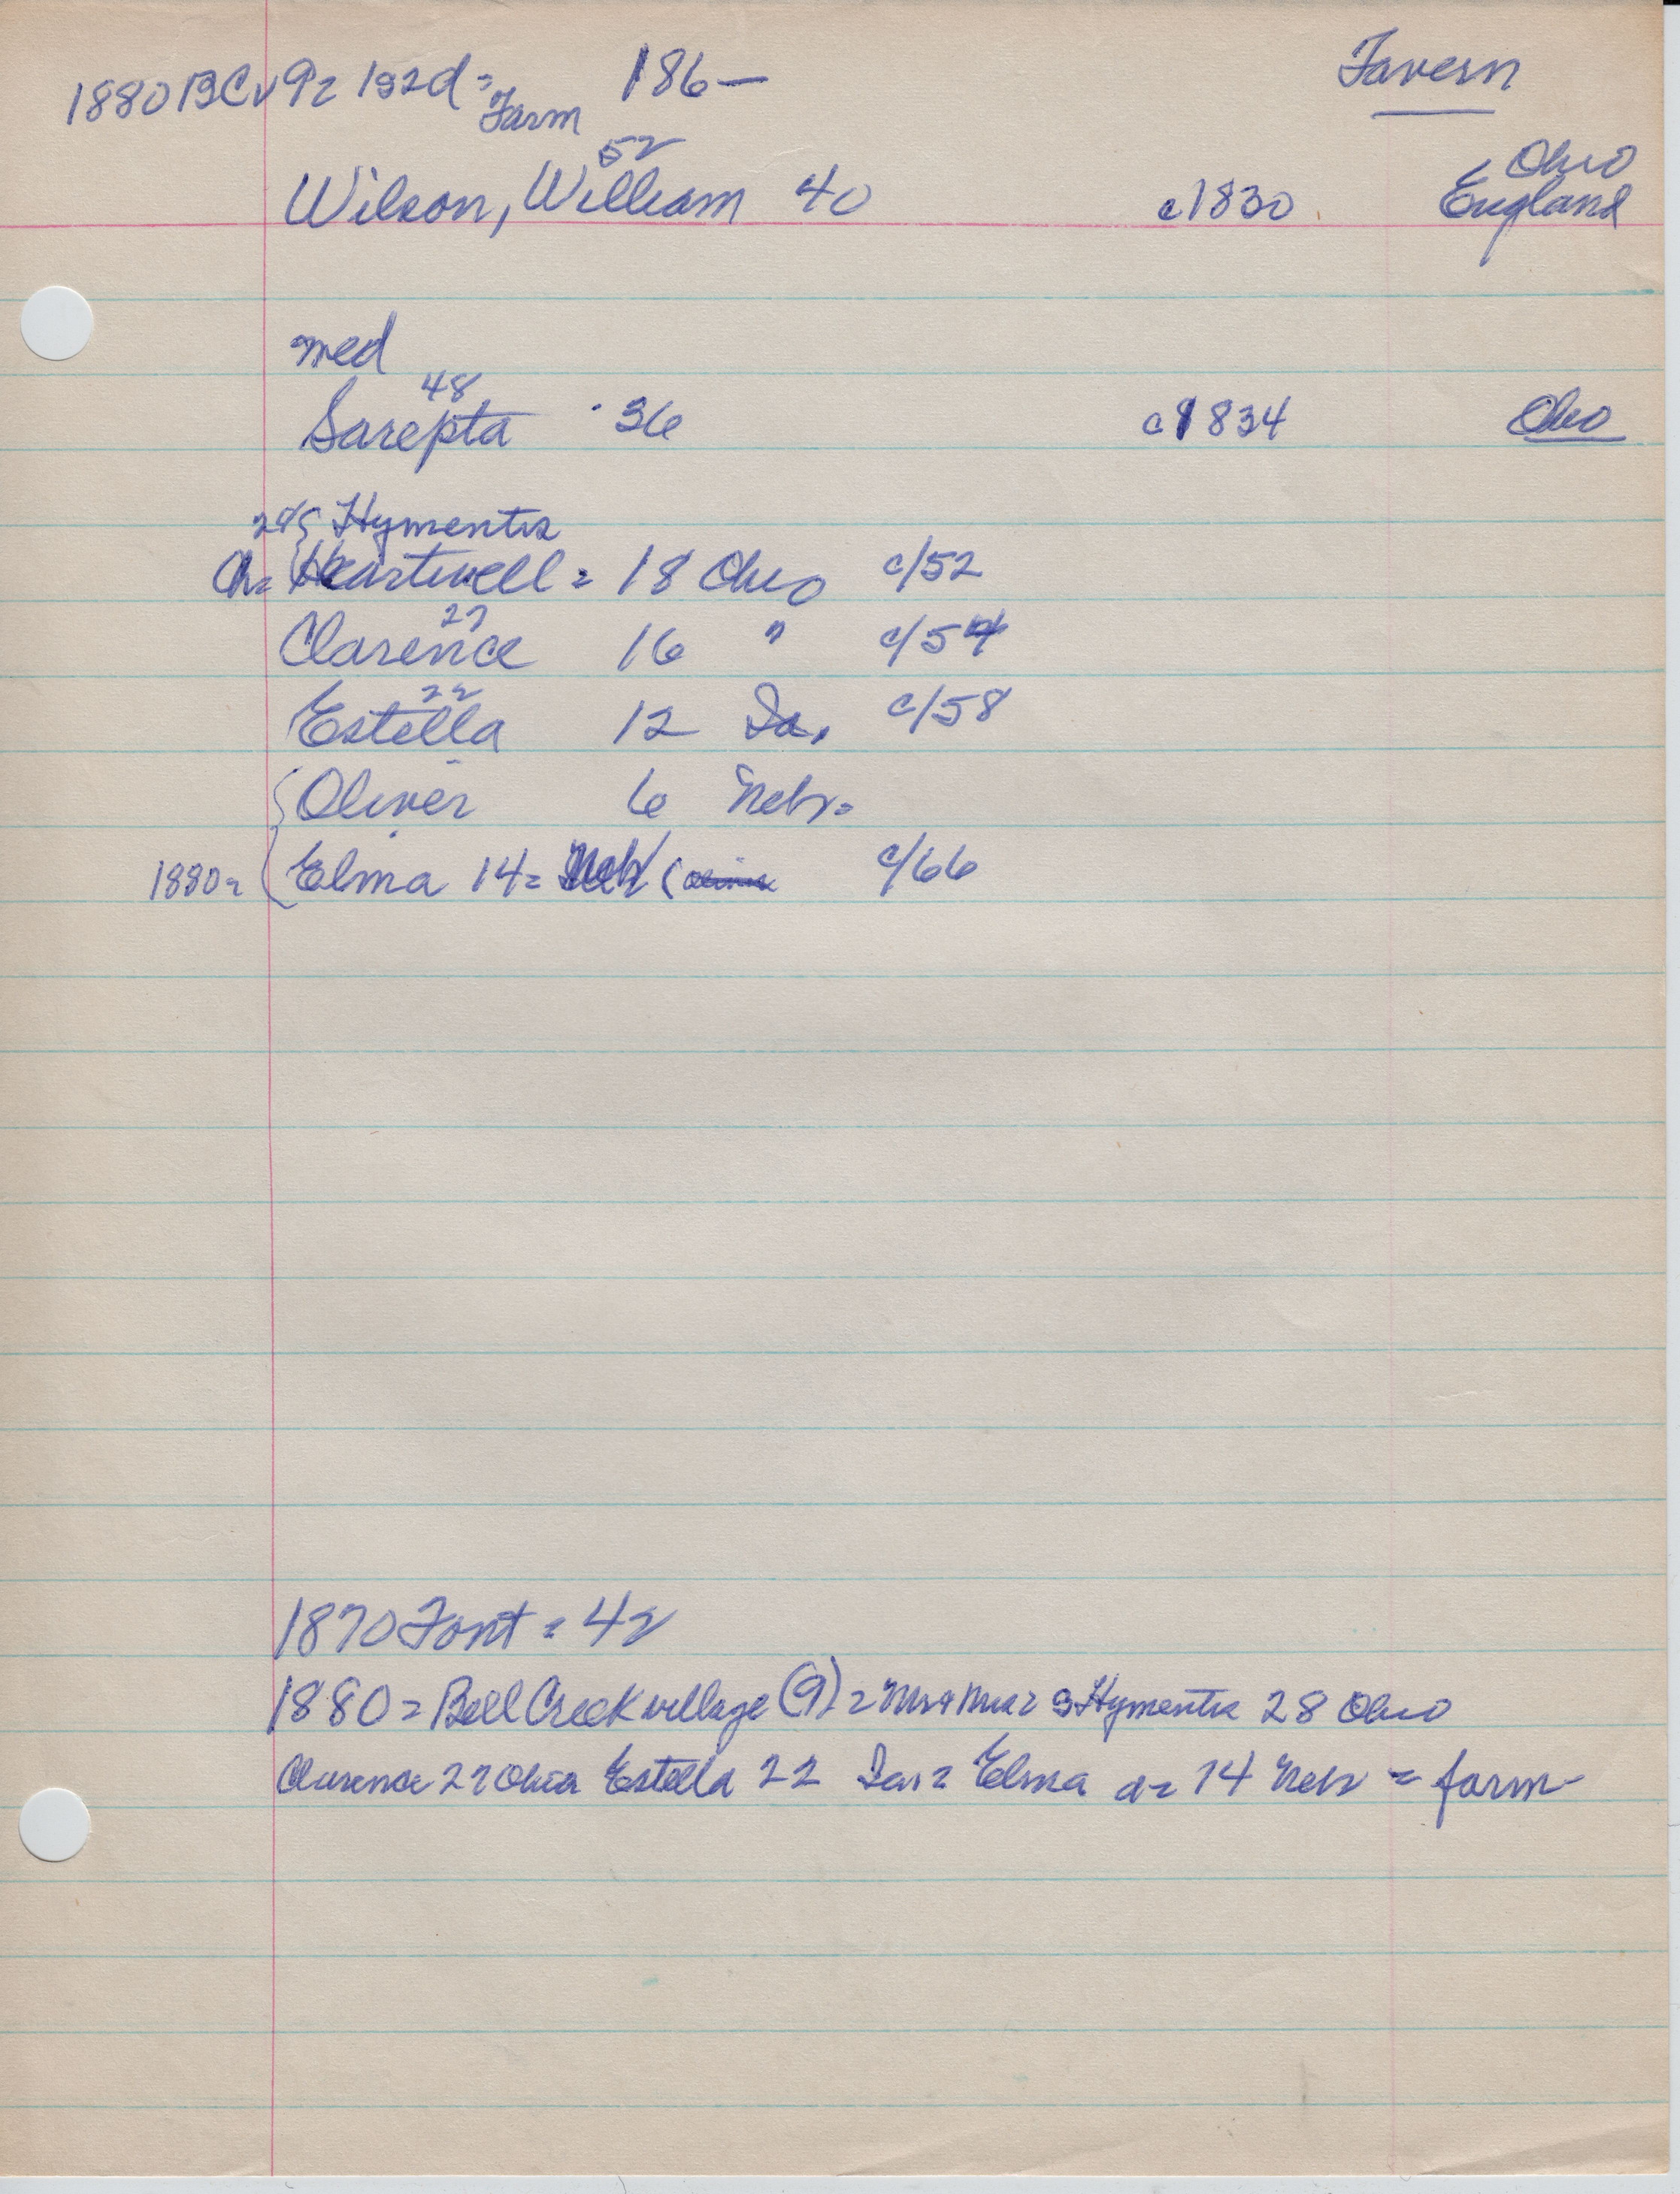 1880 BCv 9= 192d= Farm 186— Tavern
52 Ohio
Wilson, William 40 c1830 England
med
48
Sarepta 36 c1834 Ohio
28 { Hymentis
Ch= Heartwell = 18 Ohio c/52
27
Clarence 16 " c/54
22
Estella 12 Ia. c/58
{ Oliver 6 Nebr.
1880= { Elma 14= Neb ( c/66
1870 Font = 42
1880 = Bell Creek village (9) = Mr & Mrs = Hymentis 28 Ohio
Clarence 27 Ohio Estella 22 Ia. = Elma a= 14 Neb = farm